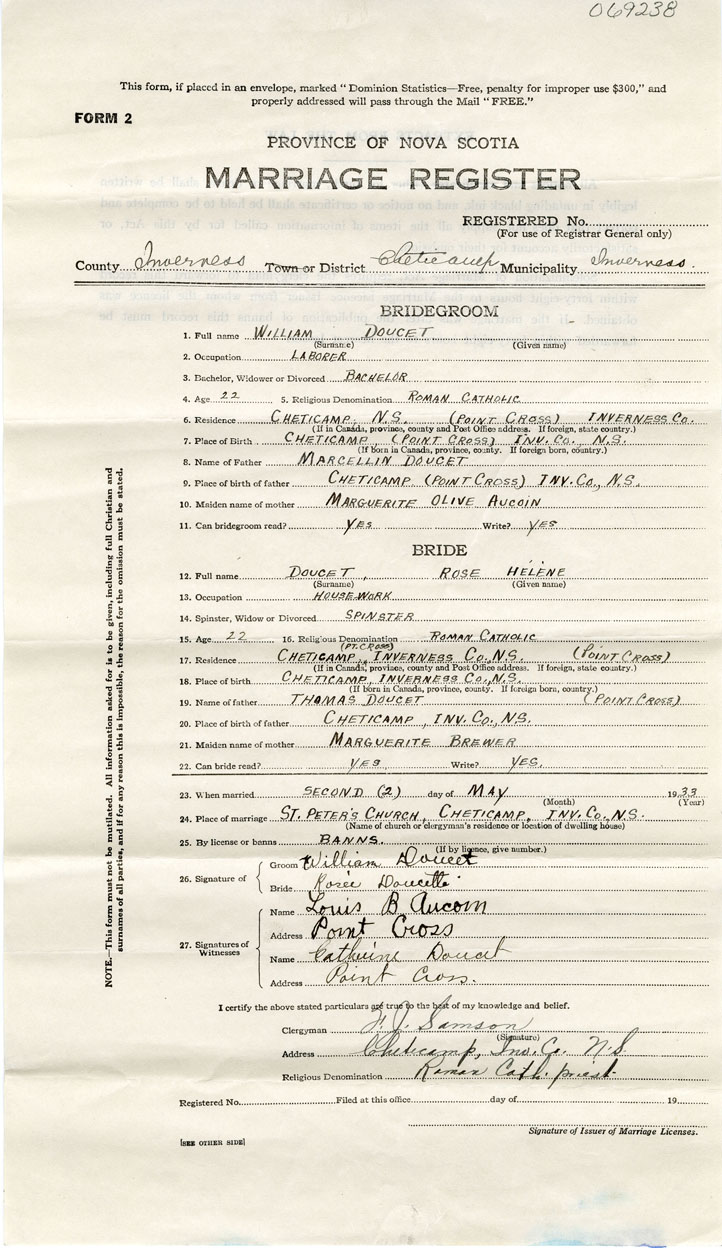 069238
This form, if placed in an envelope, marked "Dominion Statistics—Free, penalty for improper use $300," and
properly addressed will pass through the Mail "FREE."
FORM 2
PROVINCE OF NOVA SCOTIA
MARRIAGE REGISTER
REGISTERED No.
(For use of Registrar General only)
County Inverness Town or District Cheticamp Municipality Inverness.
BRIDEGROOM
1. Full name WILLIAM DOUCET
(Surname) (Given name)
2. Occupation LABORER
3. Bachelor, Widower or Divorced BACHELOR
4. Age 22 5. Religious Denomination ROMAN CATHOLIC
6. Residence CHETICAMP, N.S. (POINT CROSS) INVERNESS CO.
(If in Canada, province, county and Post Office address. If foreign, state country.)
7. Place of Birth CHETICAMP, (POINT CROSS) INV. CO., N.S.
(If born in Canada, province, county. If foreign born, country.)
8. Name of Father MARCELLIN DOUCET
9. Place of birth of father CHETICAMP (POINT CROSS) INV. CO., N.S.
10. Maiden name of mother MARGUERITE OLIVE AUCOIN
11. Can bridegroom read? YES Write? YES
BRIDE
12. Full name DOUCET, ROSE HÉLÈNE
(Surname) (Given name)
13. Occupation HOUSEWORK
14. Spinster, Widow or Divorced SPINSTER
15. Age 22 16. Religious Denomination ROMAN CATHOLIC
(PT. CROSS)
17. Residence CHETICAMP, INVERNESS CO., N.S. (POINT CROSS)
(If in Canada, province, county and Post Office address. If foreign, state country.)
18. Place of birth CHETICAMP, INVERNESS CO., N.S.
(If born in Canada, province, county. If foreign born, country.)
19. Name of father THOMAS DOUCET (POINT CROSS)
20. Place of birth of father CHETICAMP, INV. CO., N.S.
21. Maiden name of mother MARGUERITE BREWER
22. Can bride read? YES Write? YES.
23. When married SECOND (2) day of MAY 1933
(Month) (Year)
24. Place of marriage ST. PETER'S CHURCH, CHETICAMP, INV. CO., N.S.
(Name of church or clergyman's residence or location of dwelling house)
25. By license or banns BANNS.
(If by licence, give number.)
26. Signature of Groom William Doucet
Bride Rosée Doucette
27. Signatures of Witnesses
Name Louis B Aucoin
Address Point Cross
Name Catherine Doucet
Address Point Cross.
I certify the above stated particulars are true to the best of my knowledge and belief.
Clergyman F. J. Samson
(Signature)
Address Cheticamp, Inv. Co. N.S
Religious Denomination Roman Cath. priest
Registered No. Filed at this office day of 19
Signature of Issuer of Marriage Licenses.
[SEE OTHER SIDE]
NOTE.—This form must not be mutilated. All information asked for is to be given, including full Christian and
surnames of all parties, and if for any reason this is impossible, the reason for the omission must be stated.